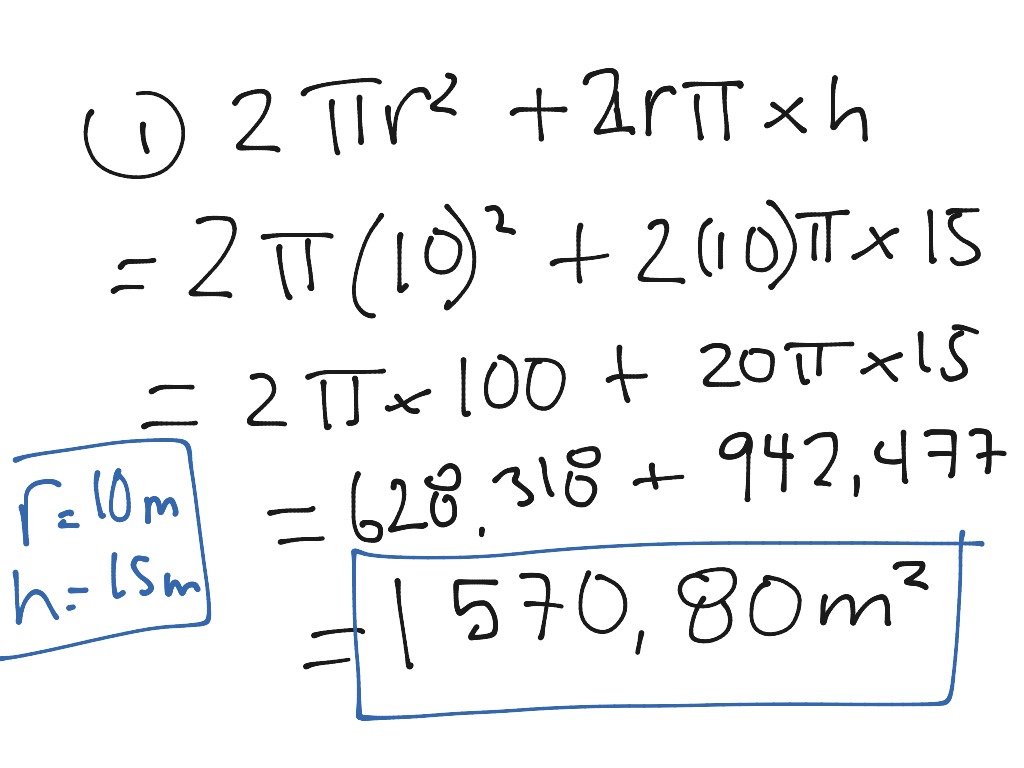 ① 2πr² + 2rπ × h
= 2π(10)² + 2(10)π × 15
= 2π × 100 + 20π × 15
= 628,318 + 942,477
= 1 570,80 m²
r = 10 m
h = 15 m